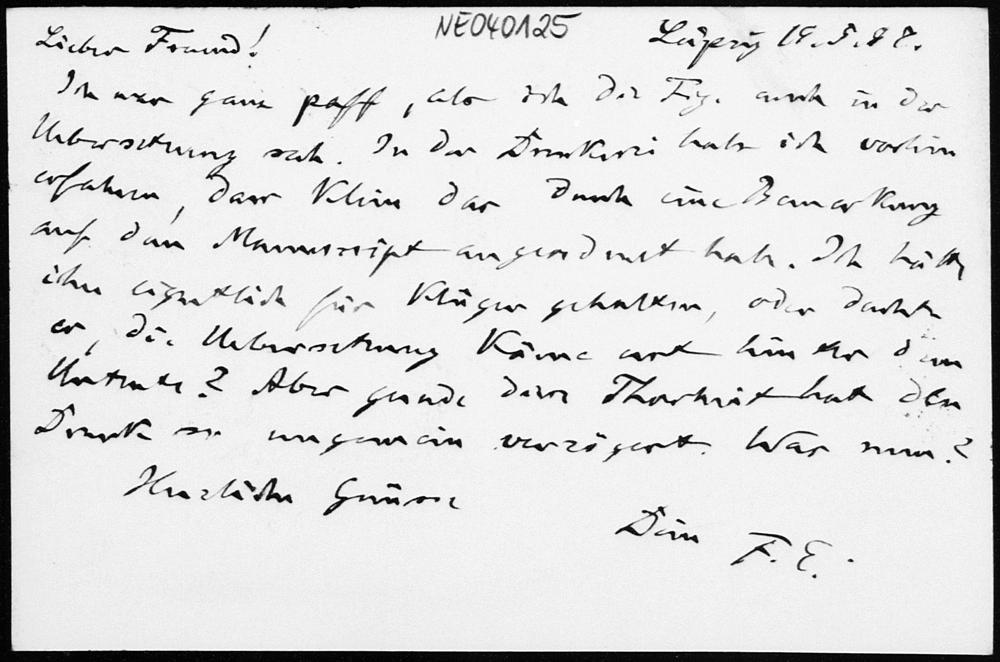 NE040125
Lieber Freund! Leipzig 19.5.97.
Ich war ganz paff, als ich die Fig. auch in der
Uebersetzung sah. In der Druckerei habe ich vorhin
erfahren, dass Klein das durch eine Bemerkung
auf dem Manuscript angeordnet habe. Ich hätte
ihn eigentlich für klüger gehalten, oder dachte
er, die Uebersetzung käme erst hinter dem
Urtexte? Aber gerade diese Thorheit hat den
Druck so ungemein verzögert. Was nun?
Herzliche Grüsse
Dein F. E.